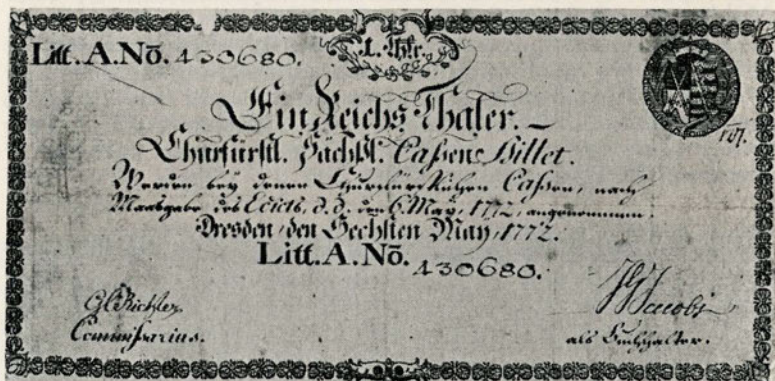 1. Thlr.
Litt. A. No. 430680.
Ein Reichs Thaler.–
Churfürstl. Sächß. Caßen-Billet.
Werden bey denen Churfürstlichen Caßen, nach
Maasgabe des Edicts, d. d. den 6. May, 1772, angenommen.
Dresden, den Sechsten May, 1772.
Litt. A. No. 430680.
Richter
Jacobi
Commißarius.
als Buchhalter.